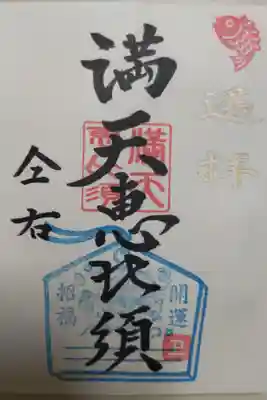 遥拝
満天恵比須
仝右
満天
開運
招福